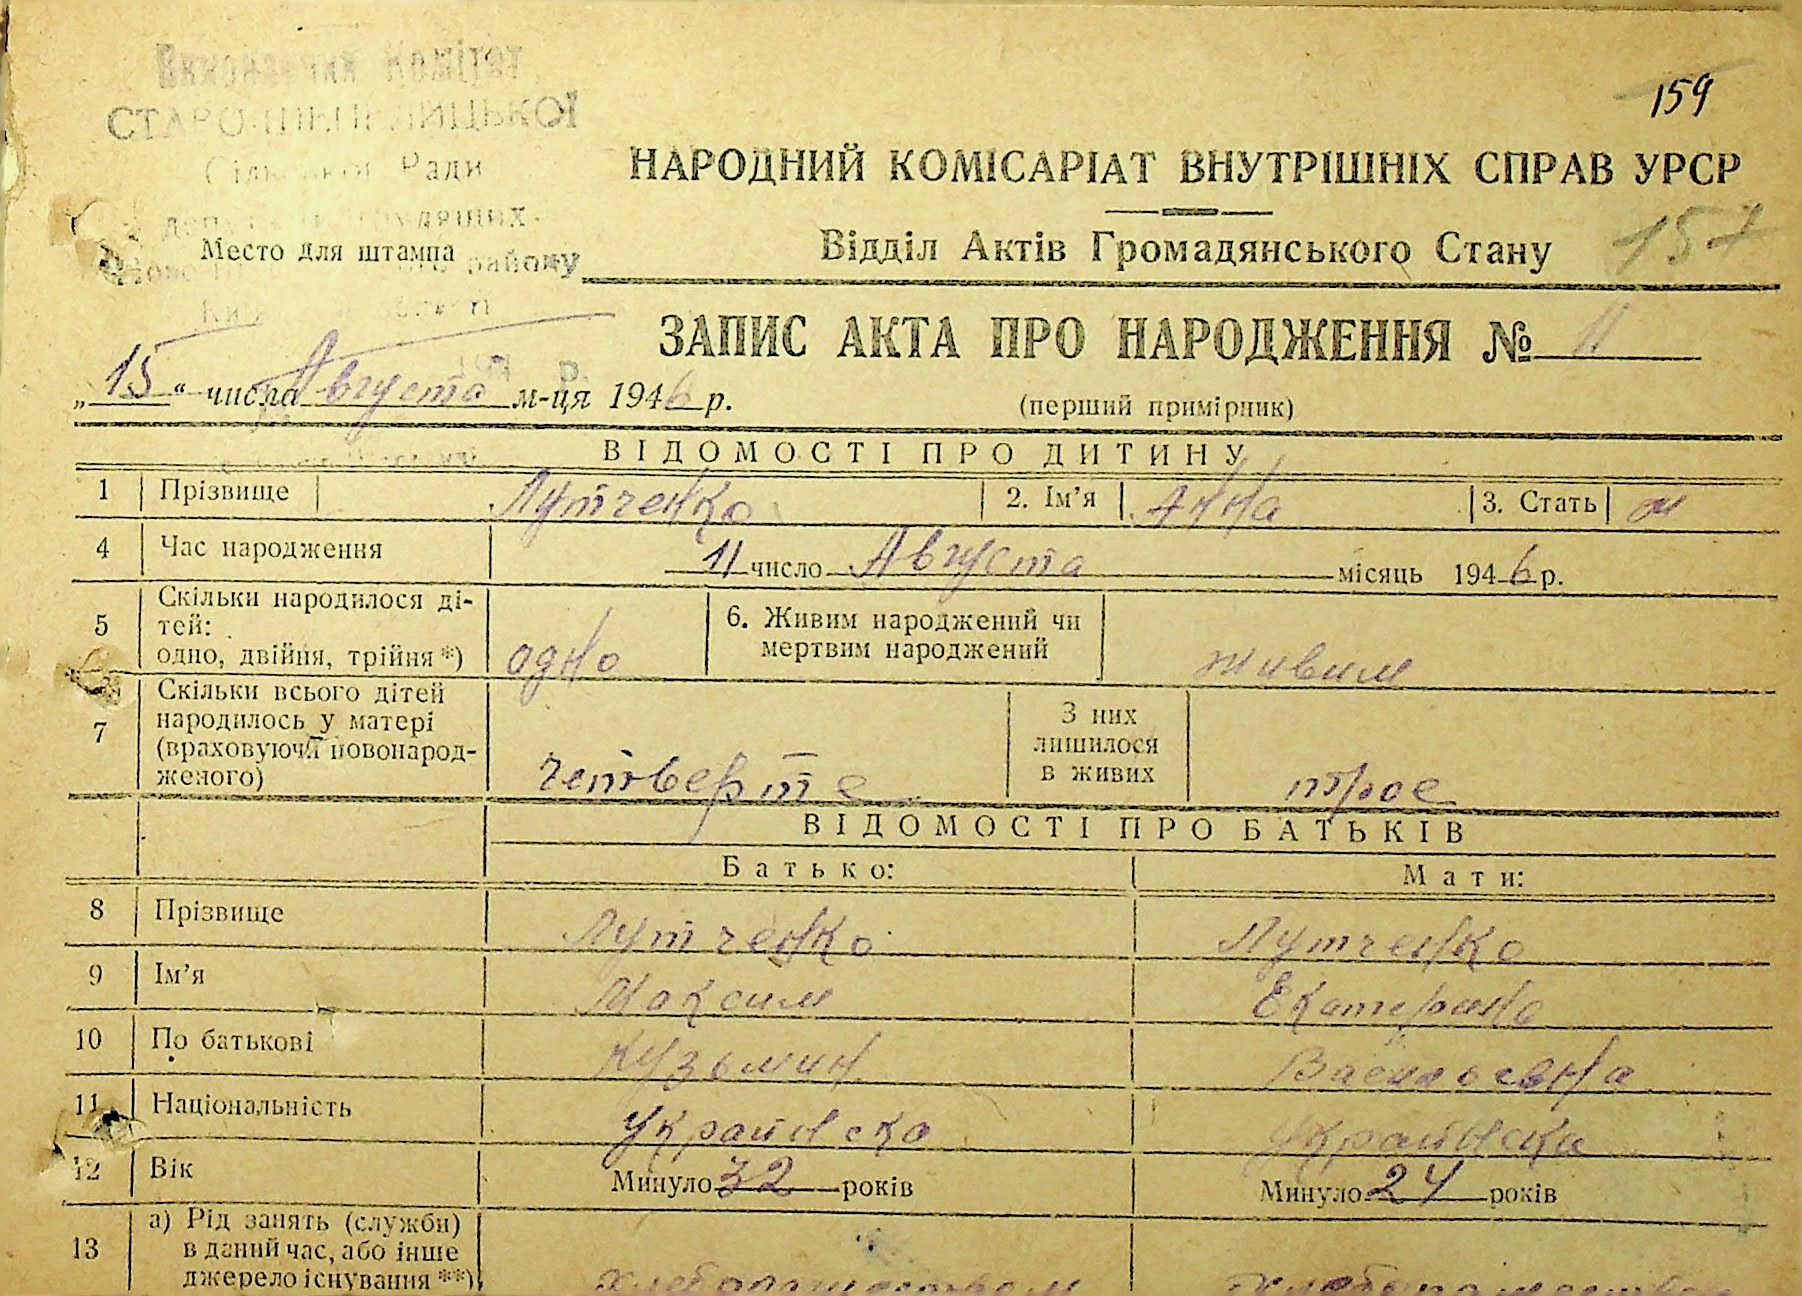 159
НАРОДНИЙ КОМІСАРІАТ ВНУТРІШНІХ СПРАВ УРСР
157
Место для штампа
району
Відділ Актів Громадянського Стану
ЗАПИС АКТА ПРО НАРОДЖЕННЯ № 11
„15“ числа Августа м-ця 1946 р.
(перший примірник)
ВІДОМОСТІ ПРО ДИТИНУ
1 Прізвище Лутченко 2. Ім’я Анна 3. Стать ж
4 Час народження 11 число Августа місяць 1946 р.
5 Скільки народилося ді-
тей:
одно, двійня, трійня *) одно
6. Живим народжений чи
мертвим народжений живим
7 Скільки всього дітей
народилось у матері
(враховуючи новонарод-
женого) четверте
З них
лишилося
в живих трое
ВІДОМОСТІ ПРО БАТЬКІВ
Батько: Мати:
8 Прізвище Лутченко Лутченко
9 Ім’я Максим Екатерина
10 По батькові Кузьмин Васильевна
11 Національність Украинска Украинска
12 Вік Минуло 32 років Минуло 24 років
13 а) Рід занять (служби)
в даний час, або інше
джерело існування **)